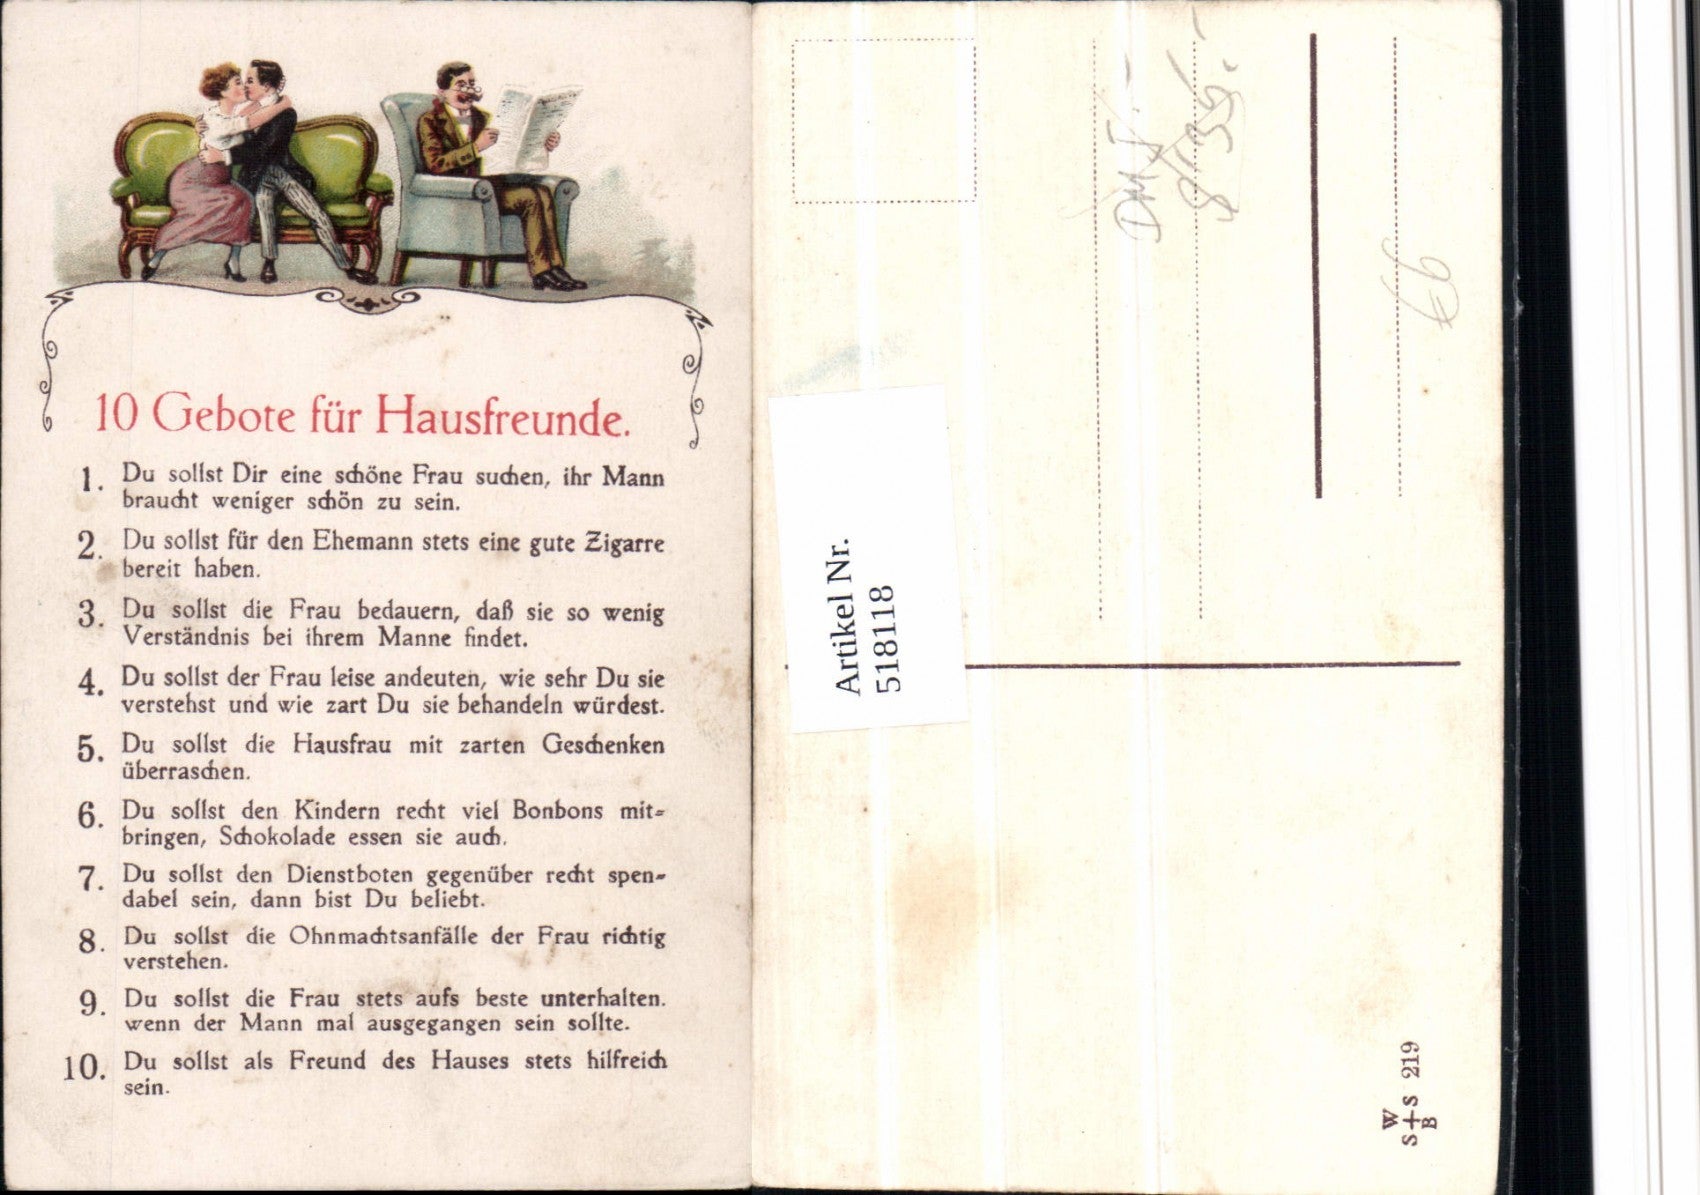 10 Gebote für Hausfreunde.
1. Du sollst Dir eine schöne Frau suchen, ihr Mann
braucht weniger schön zu sein.
2. Du sollst für den Ehemann stets eine gute Zigarre
bereit haben.
3. Du sollst die Frau bedauern, daß sie so wenig
Verständnis bei ihrem Manne findet.
4. Du sollst der Frau leise andeuten, wie sehr Du sie
verstehst und wie zart Du sie behandeln würdest.
5. Du sollst die Hausfrau mit zarten Geschenken
überraschen.
6. Du sollst den Kindern recht viel Bonbons mit-
bringen, Schokolade essen sie auch.
7. Du sollst den Dienstboten gegenüber recht spen-
dabel sein, dann bist Du beliebt.
8. Du sollst die Ohnmachtsanfälle der Frau richtig
verstehen.
9. Du sollst die Frau stets aufs beste unterhalten.
wenn der Mann mal ausgegangen sein sollte.
10. Du sollst als Freund des Hauses stets hilfreich
sein.
Artikel Nr.
518118
W
S+S 219
B